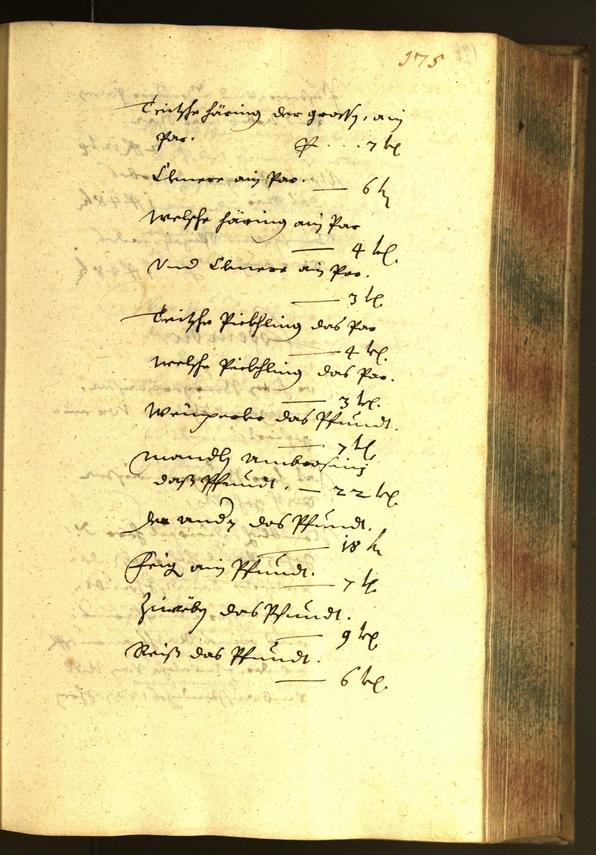 175
Teutsche häring der grossen, ain
Par. 7 kr.
Clenere ain Par. — 6 kr
Welsche häring ain Par
— 4 kr.
Und Clenere ain Par.
— 3 kr
Teutsche Pickhling das Par
— 4 kr.
Welsche Pickhling das Par.
— 3 kr.
Weinperbe das Pfundt.
— 7 kr.
Mandl Ambrosinj
dass Pfundt. — 22 kr.
der andern das Pfundt.
— 18 kr
Feig ain Pfundt.
— 7 kr
Ziweben das Pfundt.
— 9 kr
Reiß das Pfundt.
— 6 kr.